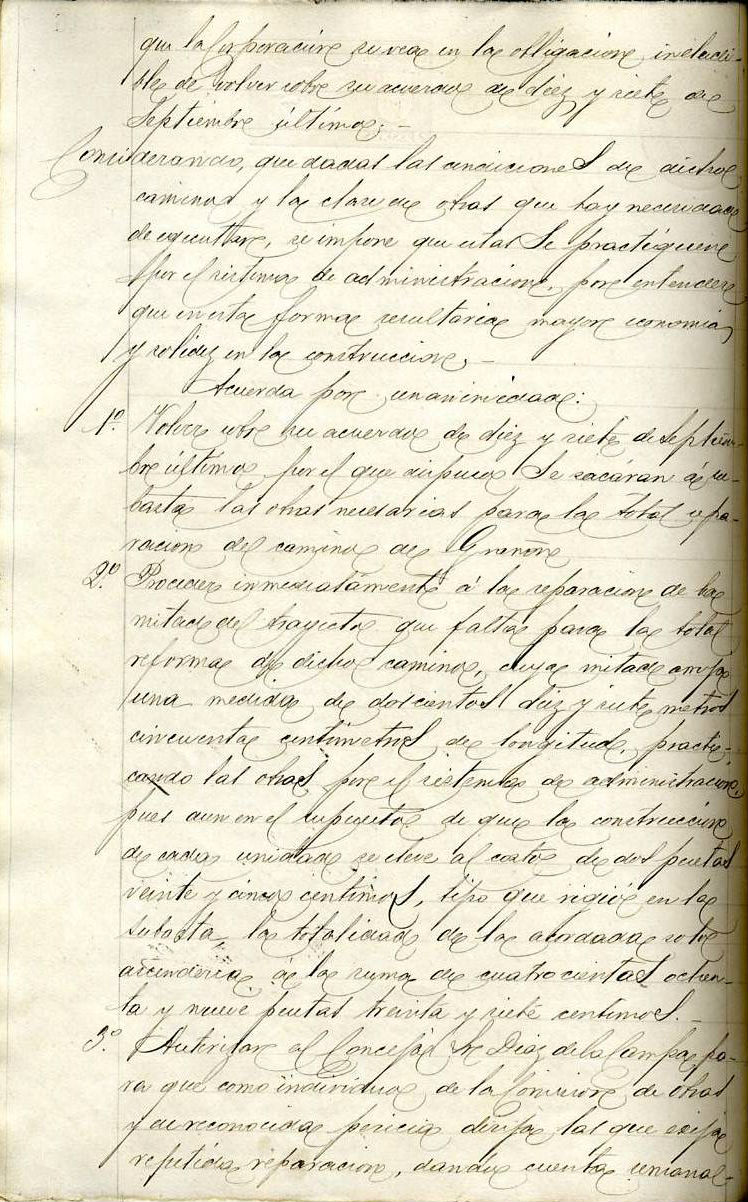 que la Corporación se vea en la obligación ineludi-
ble de volver sobre su acuerdo de diez y siete de
Septiembre último;-
Considerando, que dadas las condiciones de dicho
camino y la clase de obras que hay necesidad
de ejecutar, se impone que estas se practiquen
por el sistema de administración, por entender
que en esta forma resultaría mayor economía
y solidez en la construcción,-
Acuerda por unanimidad:
1º. Volver sobre su acuerdo de diez y siete de Septiem-
bre último por el que dispuso se sacáran á su-
basta las obras necesarias para la total repa-
racion del camino de Grañon
2º. Proceder inmediatamente á la reparacion de la
mitad del trayecto que falta para la total
reforma de dicho camino, cuya mitad arroja
una medida de doscientos diez y siete metros
cincuenta centimetros de longitud, practi-
cando las obras por el sistema de administracion,
pues aun en el supuesto de que la construcción
de cada unidad se eleve al costo de dos pesetas
veinte y cinco centimos, tipo que rigió en la
subasta, la totalidad de la acordada solo
ascenderia á la suma de cuatrocientas ochen-
ta y nueve pesetas treinta y siete centimos.-
3º. Autorizar al Concejal Sr Diaz de la Campa pa-
ra que como individuo de la Comision de obras
y de reconocida pericia dirija las que exija
repetida reparacion, dando cuenta semanal-